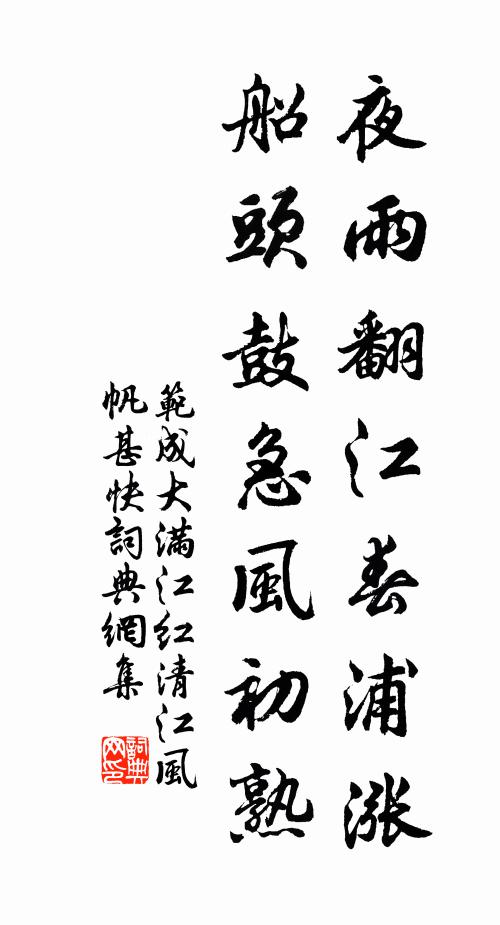 夜雨翻江春浦漲
船頭鼓急風初熟
範成大滿江紅清江風
帆甚快詞典網集
詞典
网印